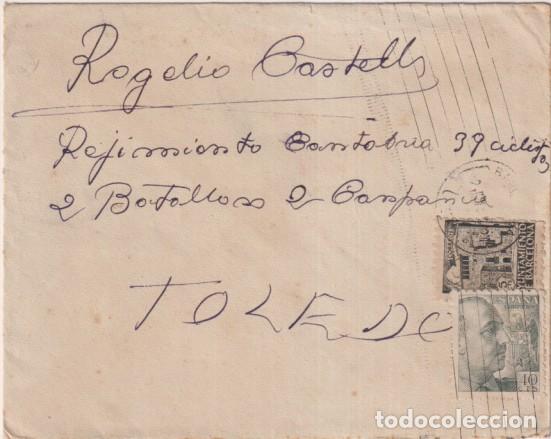 Rogelio Castells
Rejimiento Cantabria 39 ciclistas
2 Batallon 2 Compania
TOLEDO
5
AYUNTAMIENTO
DE BARCELONA
40
todocoleccion